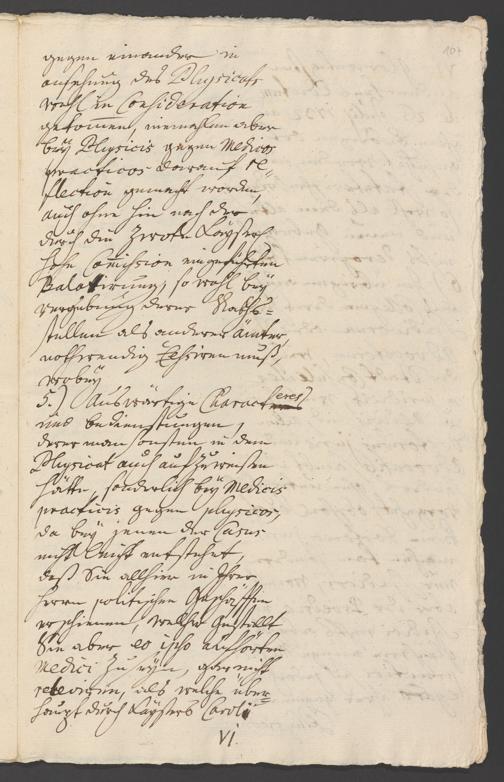 gegen einander in
ansehung des Physicats
wohl in Consideration
gekommen, niemahlen aber
bey Physicis gegen Medicos
practicos darauf re-
flection gemacht worden,
auch ohne hin nach der
durch die Kayserl.
hohe Comission eingeführten
Balotirung, so wohl bey
vergebung derer Raths-
stellen als anderer ämter,
nothwendig cessiren muß,
wobey
5.) Auswärtige Characteres
und bedienstungen,
derer man sonsten in dem
Physicat auch aufzuweisen
hätte, sonderlich bey Medicis
practicis gegen physicos,
da bey jenen der Casus
nicht leicht entstehet,
daß Sie allhier in Ihrer
Herrn politischen Geschäfften
erschienen, welcher gestallt
Sie aber eo ipso aufhörten
Medici zu seyn, gar nicht
releviren, als welche über-
haupt durch Kaysers Caroli
VI.